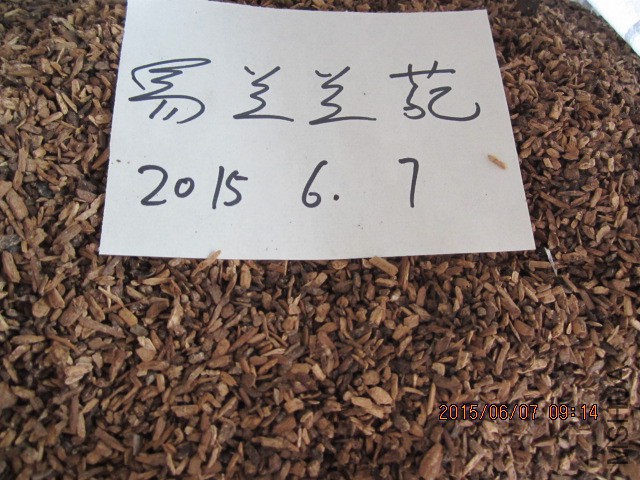 易兰兰苑
2015 6. 7
2015/06/07 09:14